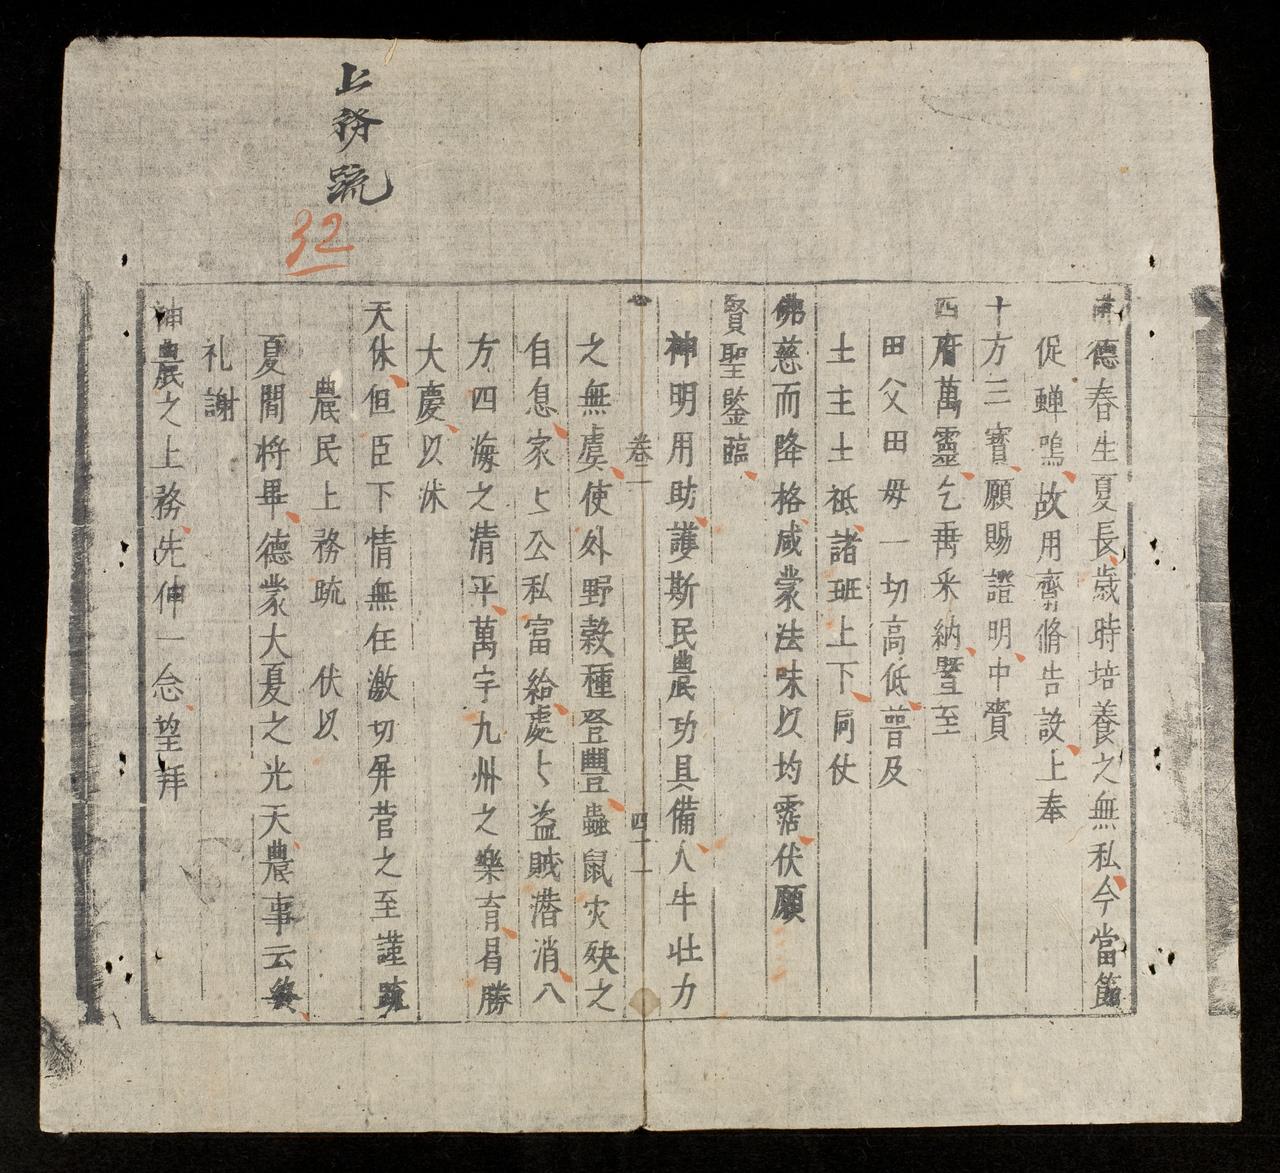 德春生夏長歲時培養之無私今當節
促蟬鳴故用齋脩告設上奉
十方三寶願賜證明中賫
四府萬靈乞垂采納曁至
田父田母一切高低普及
土主土祗諸班上下同仗
佛慈而降格咸蒙法味以均霑伏願
賢聖鑒臨
神明用助護斯民農功具備人牛壯力
卷二 四十一
之無虞使外野穀種登豐蟲鼠灾殃之
自息家〻公私富給處〻盗賊潜消八
方四海之清平萬宇九州之樂育曷勝
大慶以沐
天休但臣下情無任激切屏菅之至謹疏
農民上務疏 伏以
夏閒将畢德蒙大夏之光天農事云終
礼謝
神農之上務先伸一念望拜
上務疏
32